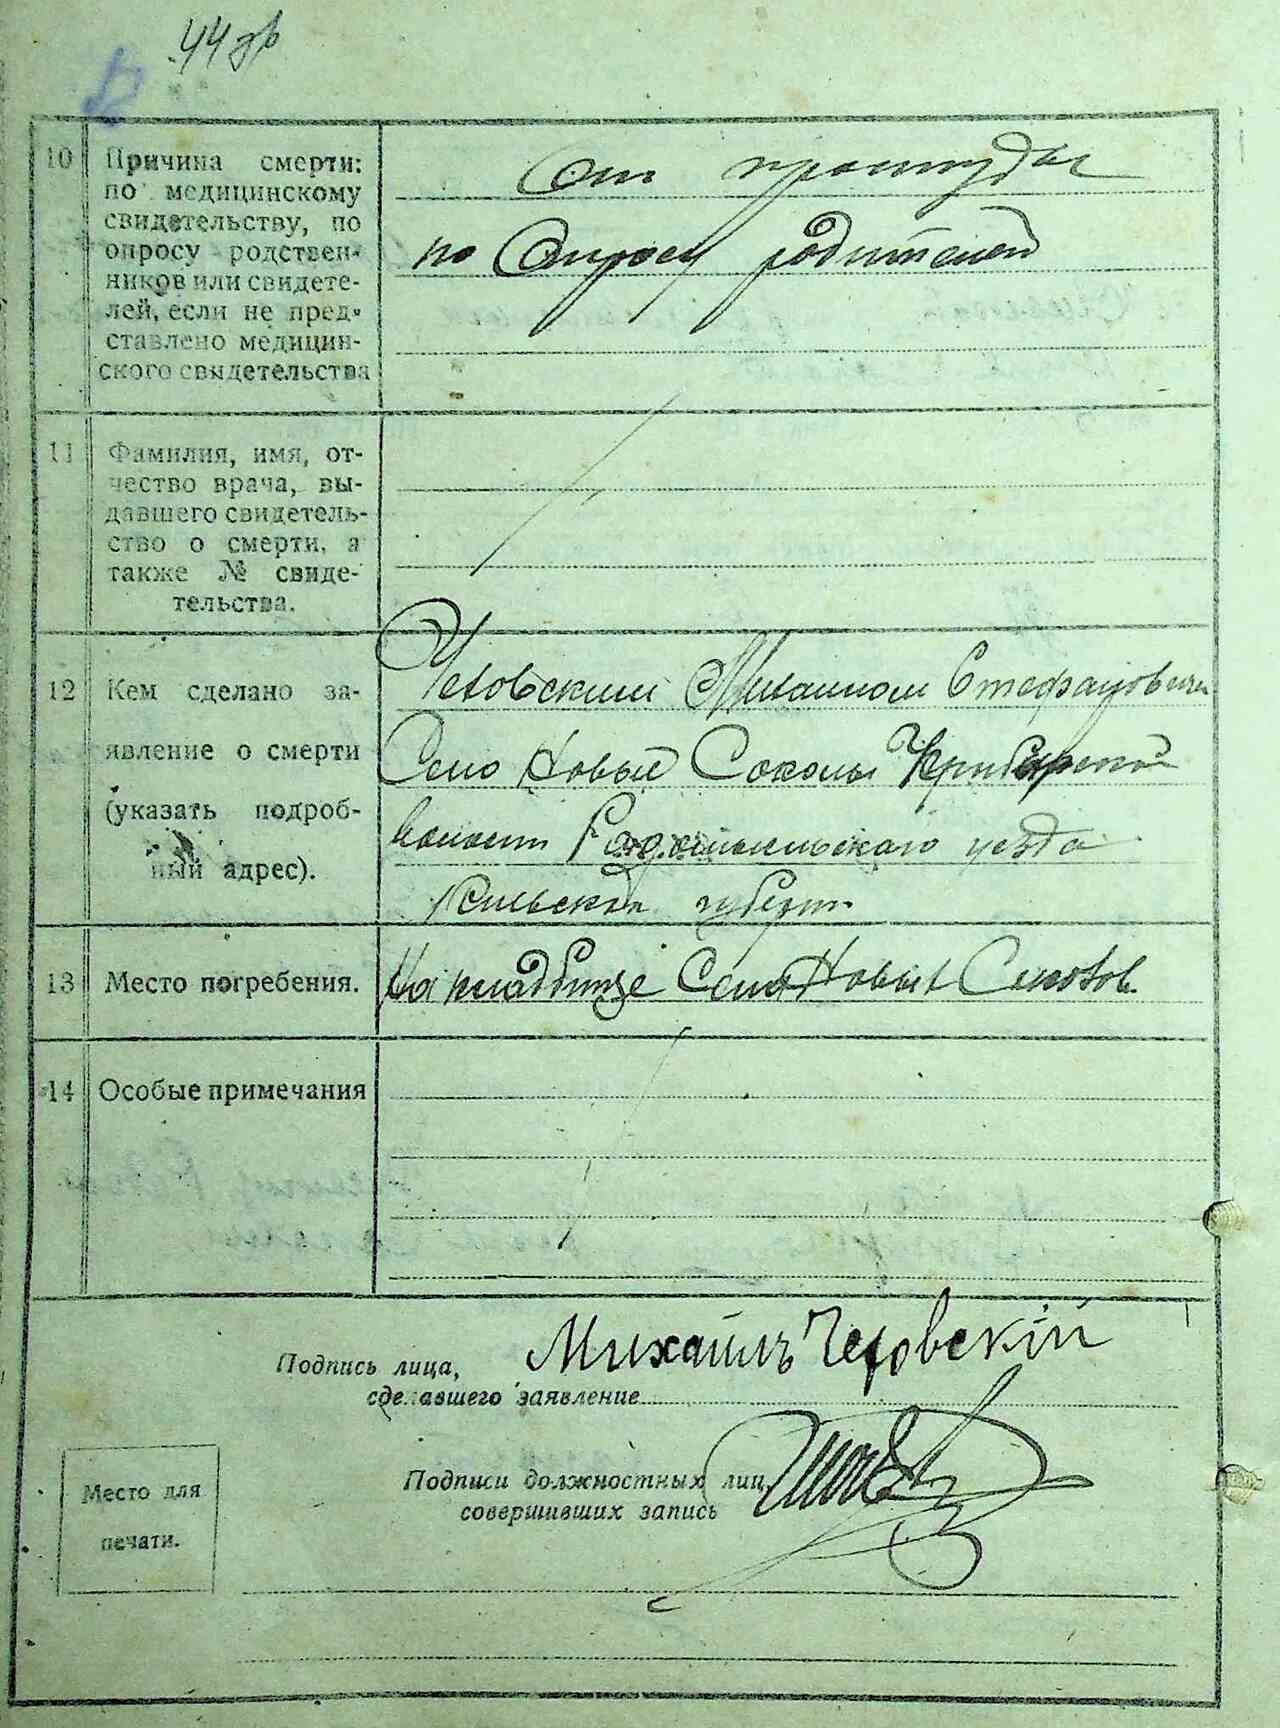 44 зв
10 Причина смерти:
по медицинскому
свидетельству, по
опросу родствен-
ников или свидете-
лей, если не пред-
ставлено медицин-
ского свидетельства
От простуды
по Опросу родителей
11 Фамилия, имя, от-
чество врача, вы-
давшего свидетель-
ство о смерти, а
также № свиде-
тельства.
12 Кем сделано за-
явление о смерти
(указать подроб-
ный адрес).
Чеховским Михаилом Стефановичем
Село Новый
волости уезда
губерн.
13 Место погребения.
На кладбище Села Новых
14 Особые примечания
Подпись лица,
сделавшего заявление
Михаилъ Чеховскій
Подписи должностных лиц,
совершивших запись
Место для
печати.